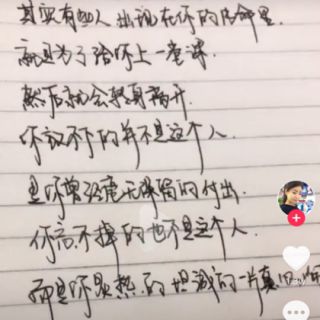 其实有些人出现在你的生命里.
就是为了给你上一堂课.
然后就会转身离开.
你放不下的并不是这个人.
是你曾经毫无保留的付出.
你忘不掉的也不是这个人.
而是你最热的坦诚的一片真心